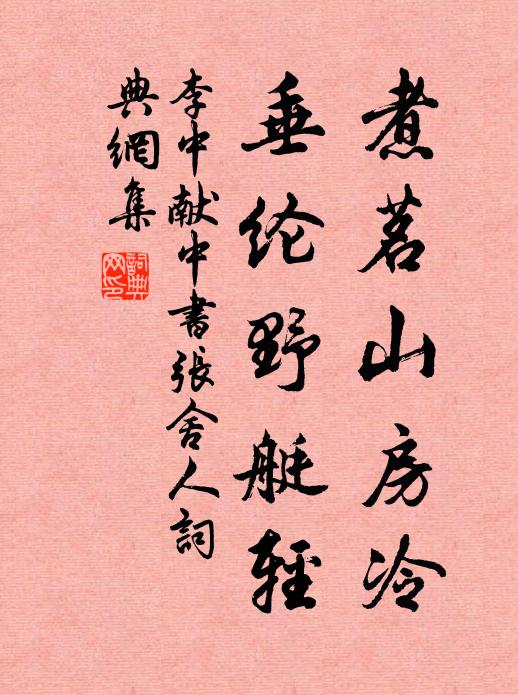 煮茗山房冷
垂纶野艇轻
李中献中書張舍人詞
典網集
詞典
网印